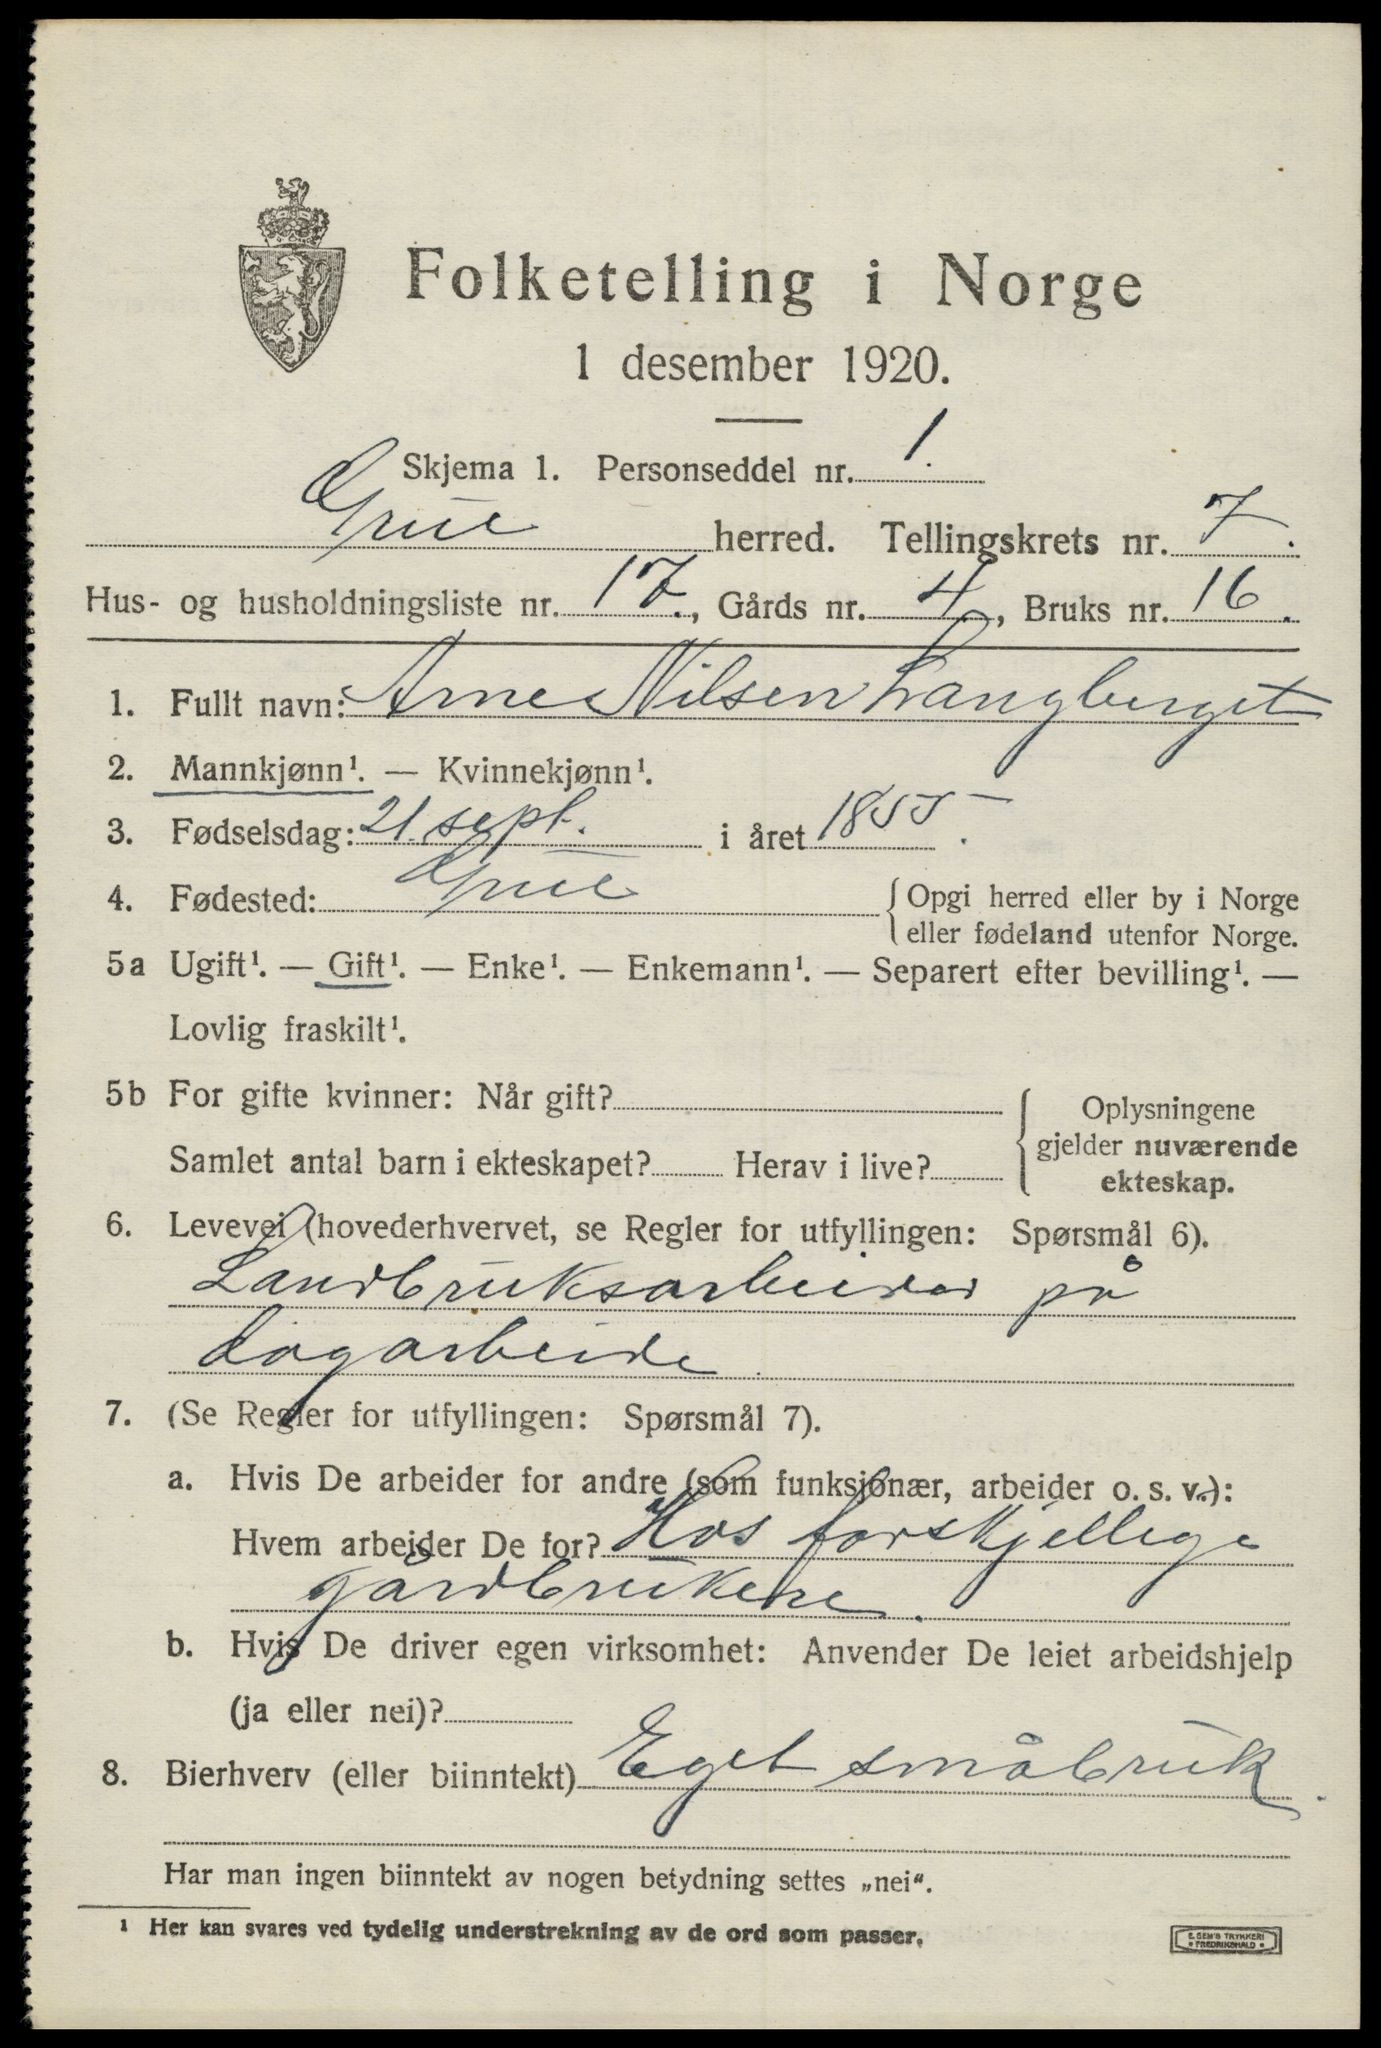 Folketelling i Norge
1 desember 1920.
Skjema 1. Personseddel nr. 1.
Grue herred. Tellingskrets nr. 7.
Hus- og husholdningsliste nr. 17., Gårds nr. 4, Bruks nr. 16.
1. Fullt navn: Arne Nilsen Langberget
2. Mannkjønn¹. — Kvinnekjønn¹.
3. Fødselsdag: 21. sept. i året 1855.
4. Fødested: Grue {Opgi herred eller by i Norge
eller fødeland utenfor Norge.
5a Ugift¹. — Gift¹. — Enke¹. — Enkemann¹. — Separert efter bevilling¹. —
Lovlig fraskilt¹.
5b For gifte kvinner: Når gift? {Oplysningene
gjelder nuværende
Samlet antal barn i ekteskapet? Herav i live?
ekteskap.
6. Levevei (hovederhvervet, se Regler for utfyllingen: Spørsmål 6).
Landbruksarbeider på
dagarbeide.
7. (Se Regler for utfyllingen: Spørsmål 7).
a. Hvis De arbeider for andre (som funksjonær, arbeider o. s. v.):
Hvem arbeider De for? Hos forskjellige
gårdbrukere.
b. Hvis De driver egen virksomhet: Anvender De leiet arbeidshjelp
(ja eller nei)?
8. Bierhverv (eller biinntekt) Eget småbruk.
Har man ingen biinntekt av nogen betydning settes „nei“.
¹ Her kan svares ved tydelig understrekning av de ord som passer.
E. SEM'S TRYKKERI
• FREDRIKSHALD •